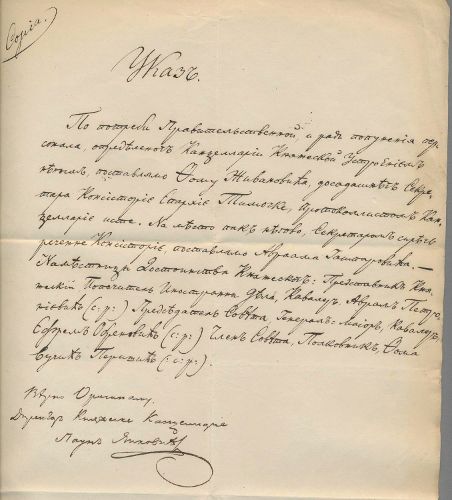 Copia.
Указъ.
По потреби Правительственной, и ради попуненія пер-
сонала, опредѣленогъ Канцелларіи Княжеской Устроенієм
нѣнимъ, поставлямо Ѳому Живановића, досадашнѣгъ Секре-
тара Консисторіе Епархіе Тимочке, Протоколлистомъ Кан-
целларіе исте. На мѣсто пакъ нѣгово, Секретаромъ
речене Консисторіе, поставлямо Авраама Гашпаровића. —
Намѣстницы Достоинства Княжескагъ: Представникъ Кня-
жескій Попечитель Инострани Дѣлъ, Кавалеръ, Аврамъ Петро-
нієвићъ (: с: р:) Предсѣдатель Совѣта, Генералъ-Маіоръ, Кавалеръ,
Ефремъ Обреновићъ (: с: р:) Членъ Совѣта, Полковникъ, Ѳома
Вучићъ Перишићъ (: с: р:).
Вѣрно Оригиналу.
Директоръ Княжеске Канцелларіе
Паунъ Янковићъ